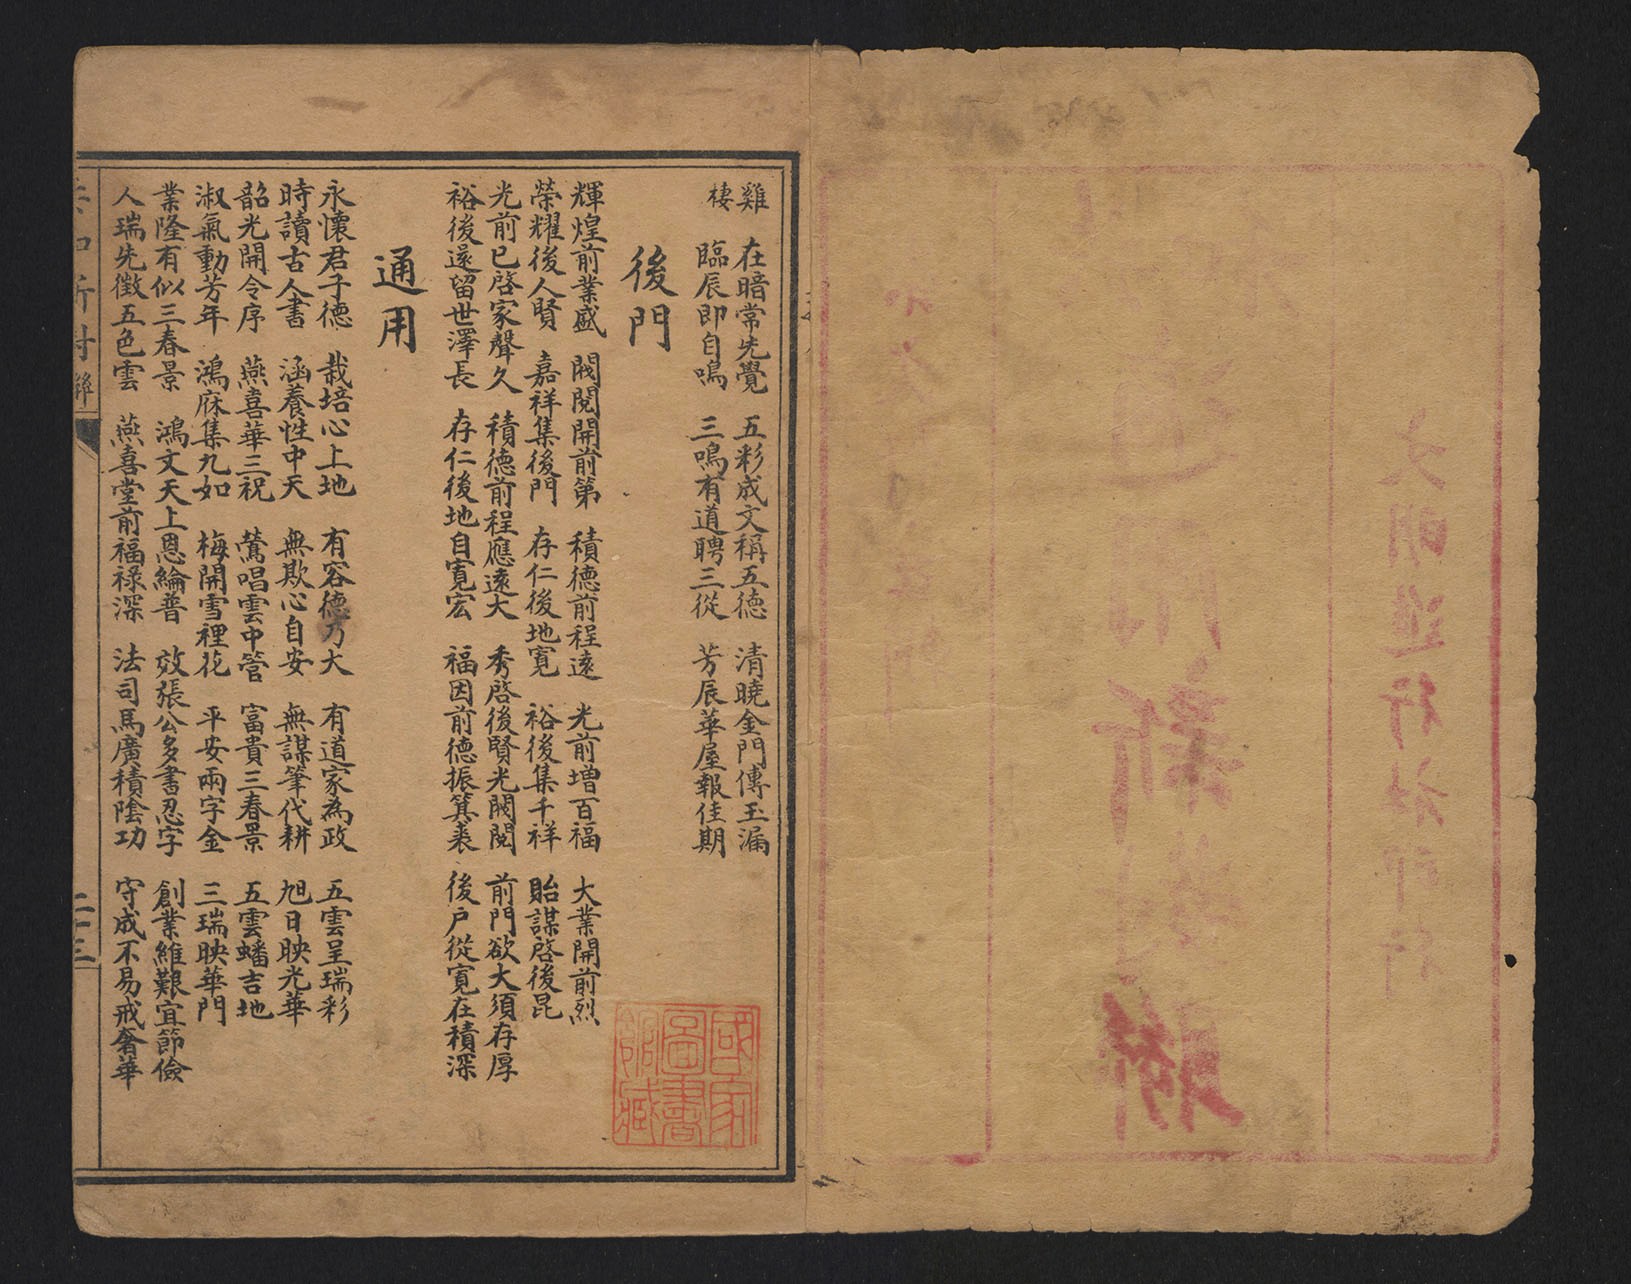 文明進行社印行
雞棲
在暗常先覺　五彩成文稱五德　清曉金門傳玉漏
臨辰即自鳴　三鳴有道聘三從　芳辰華屋報佳期
後門
輝煌前業盛　閥閱開前第　積德前程遠　光前增百福　大業開前烈
榮耀後人賢　嘉祥集後門　存仁後地寬　裕後集千祥　貽謀啓後昆
光前已啓家聲久　積德前程應遠大　秀啓後賢光閥閱　前門欲大須存厚
裕後還留世澤長　存仁後地自寬宏　福因前德振箕裘　後户從寬在積深
通用
永懷君子德　栽培心上地　有容德乃大　有道家為政　五雲呈瑞彩
時讀古人書　涵養性中天　無欺心自安　無謀筆代耕　旭日映光華
韶光開令序　燕喜華三祝　鶯唱雲中管　富貴三春景　五雲蟠吉地
淑氣動芳年　鴻庥集九如　梅開雪裡花　平安兩字金　三瑞映華門
業隆有似三春景　鴻文天上恩綸普　效張公多書忍字　創業維艱宜節儉
人瑞先徵五色雲　燕喜堂前福祿深　法司馬廣積陰功　守成不易戒奢華
二十三
國家圖書館藏